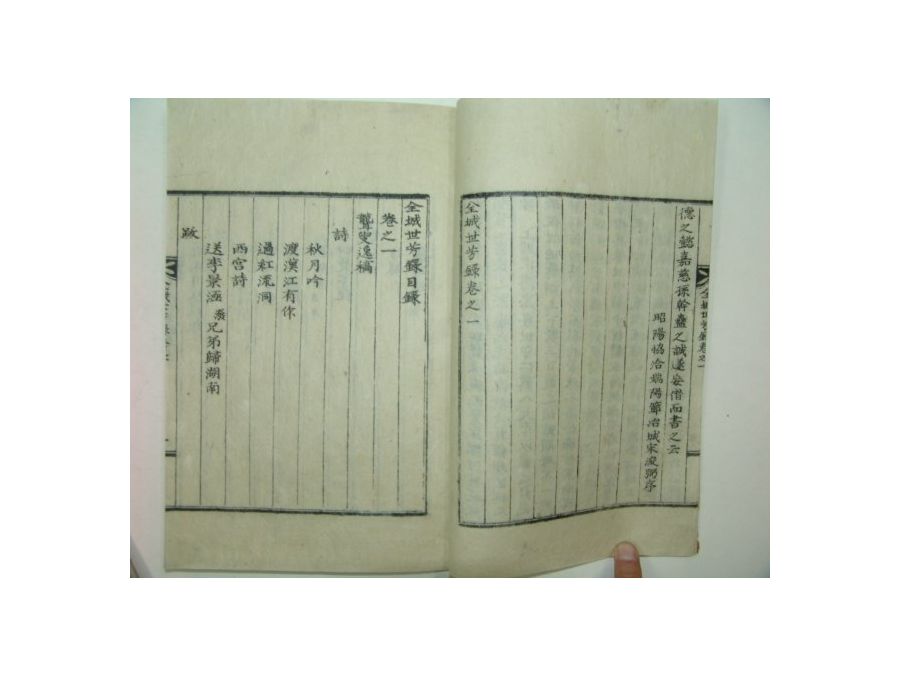 德之懿嘉慈孫幹蠱之誠遂妄僭而書之云
昭陽協洽端陽節冶城宋浚弼序
全城世芳錄卷之一
全城世芳錄目錄
卷之一
聾叟逸稿
詩
秋月吟
渡漢江有作
過紅流洞
西宮詩
送李景涵 潑 兄弟歸湖南
跋